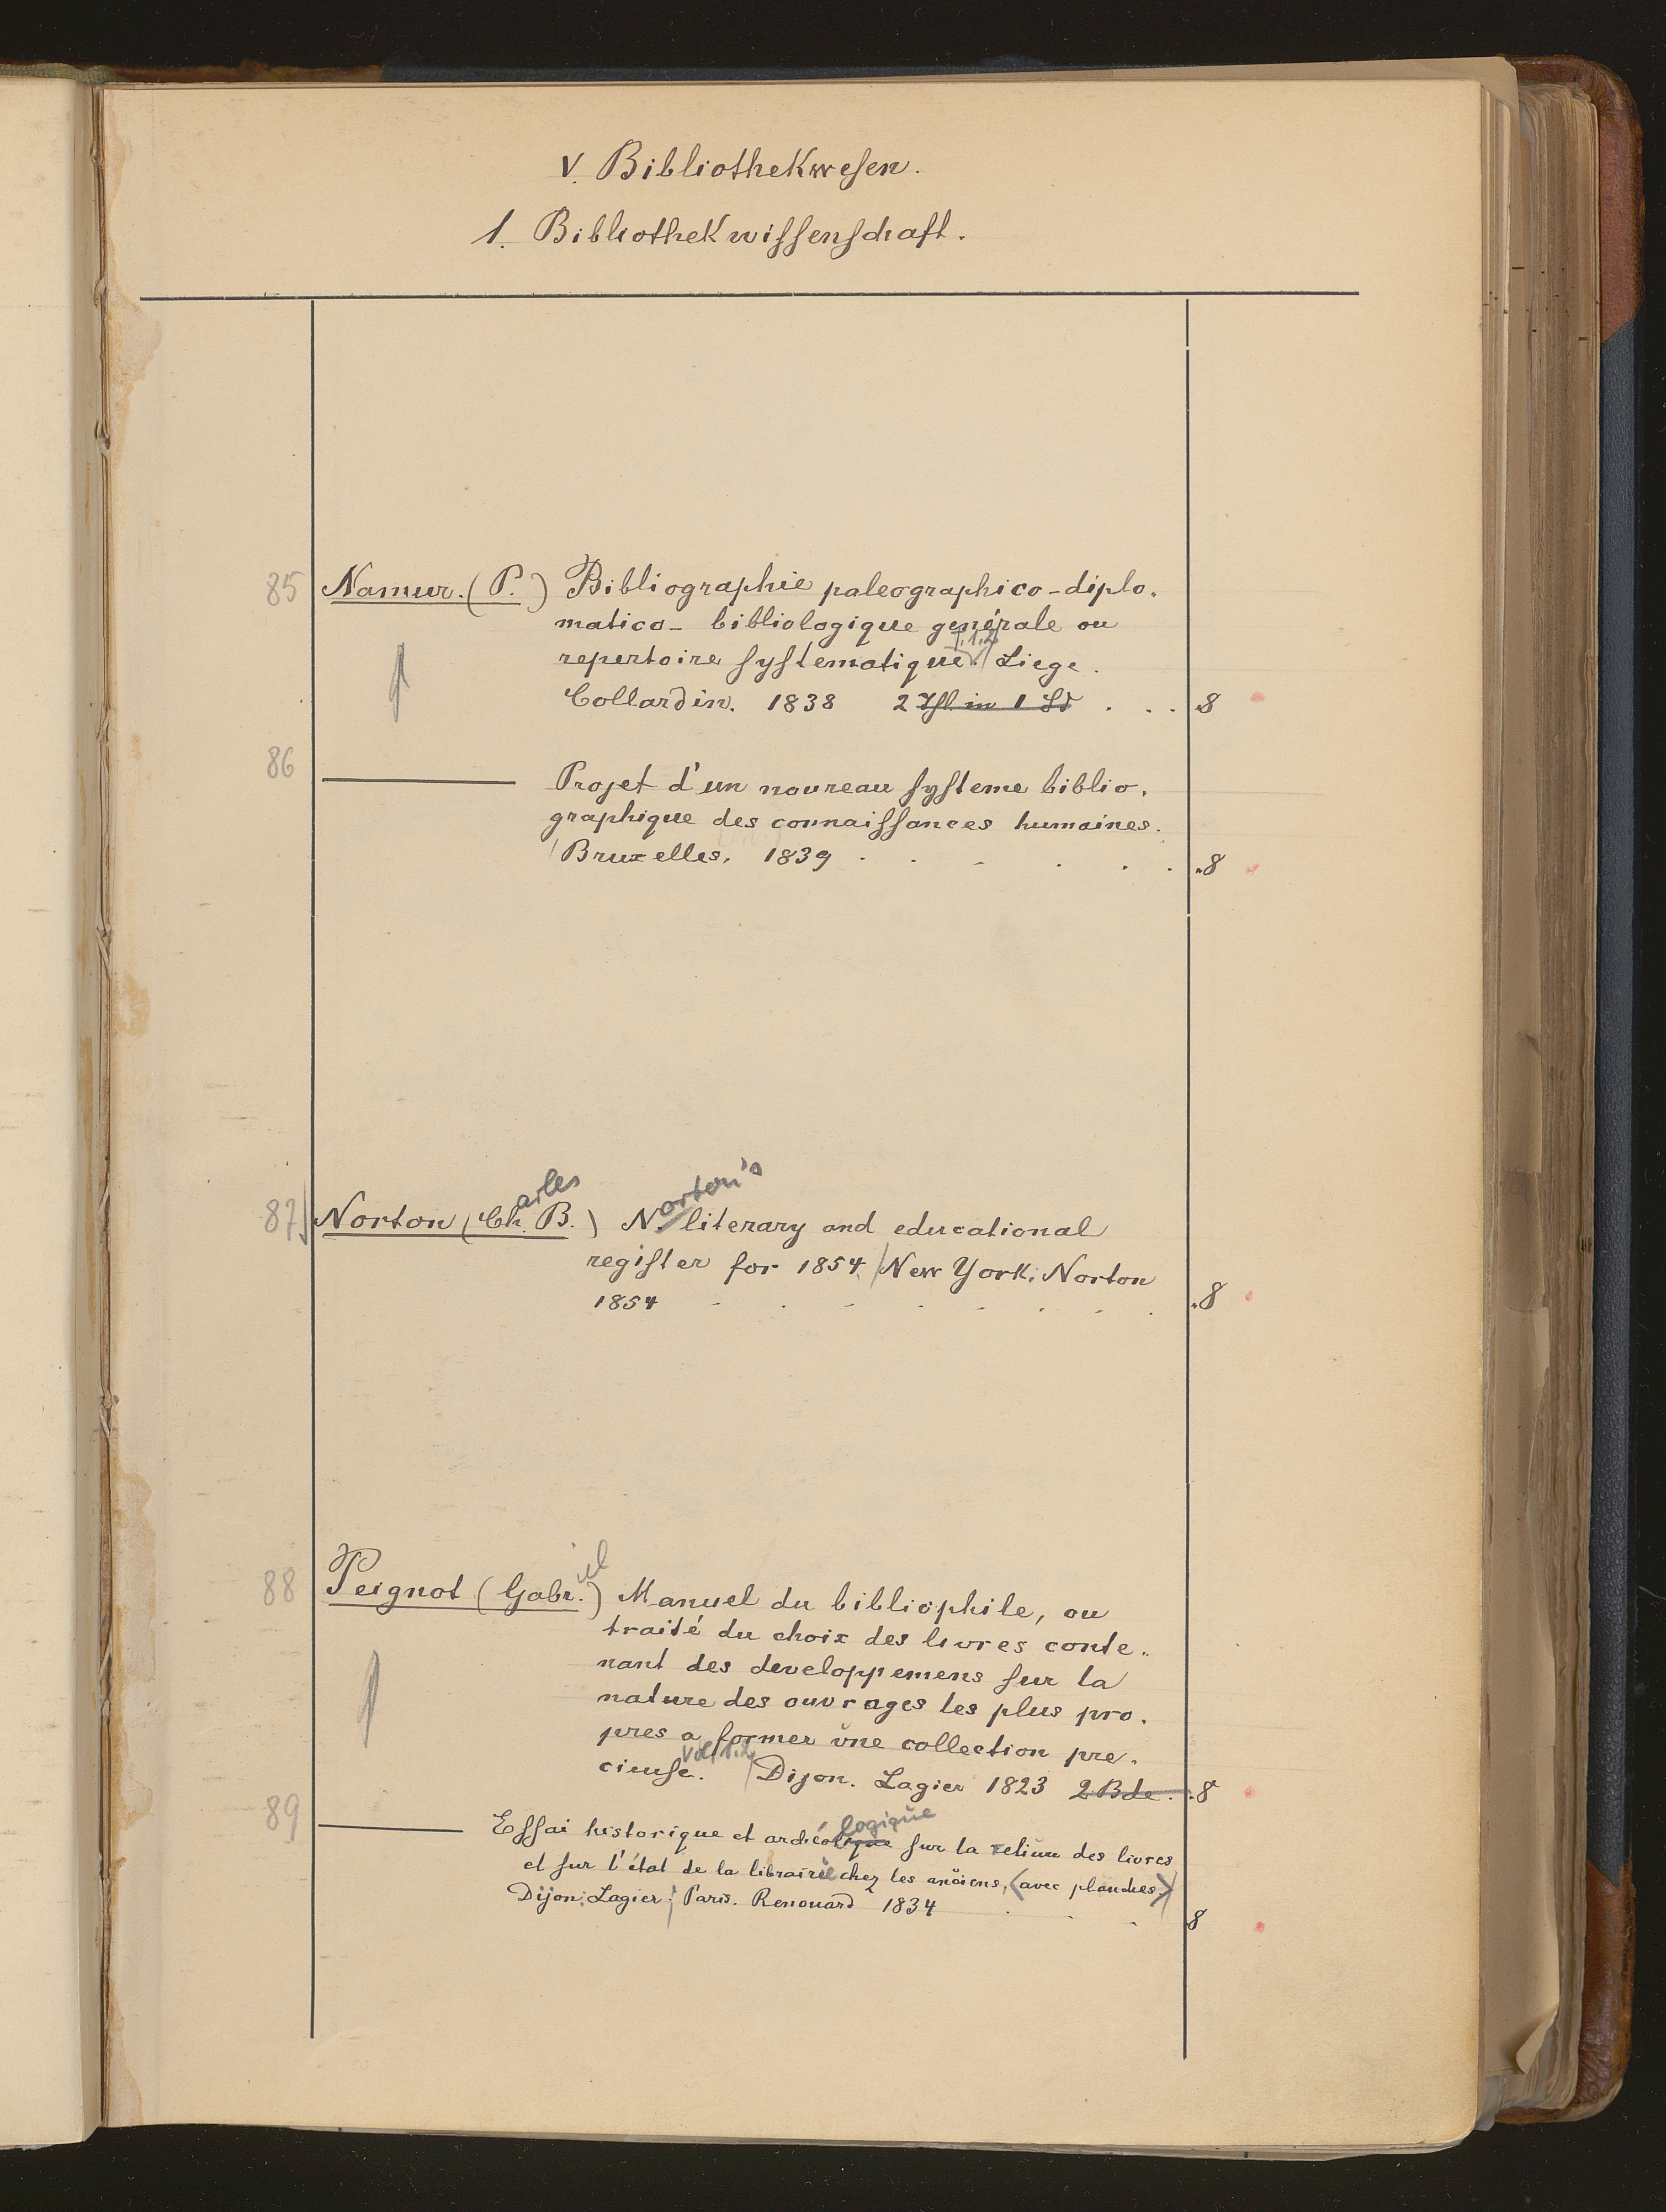 V. Bibliothekwesen.
1. Bibliothekwissenschaft.
85 Namur. (P.) Bibliographie paleographico-diplo-
matico- bibliologique genérale ou
T. 1.2
repertoire systematique. Liege.
Collardin. 1838 2 Thl. in 1 Bd . . . 8
86 ——— Projet d'un nouveau systeme biblio-
graphique des connaissances humaines.
Bruxelles. 1839 . . . . . . 8
arles orton's
87 Norton (Ch. B.) N. literary and educational
register for 1854. New York. Norton
1854 . . . . . . . . 8
iel
88 Peignot (Gabr.) Manuel du bibliophile, ou
traité du choix des livres conte-
nant des developpemens sur la
nature des ouvrages les plus pro-
pres a former une collection pre-
Vol. 1.2
cieuse. Dijon. Lagier 1823 2 Bde . 8
logique
89 ——— Essai historique et archéolique sur la reliure des livres
et sur l'état de la librairie chez les anciens, (avec planches.)
Dijon: Lagier; Paris. Renouard 1834 . . . 8